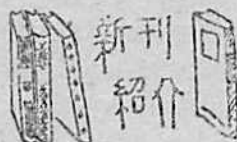 新刊
紹介